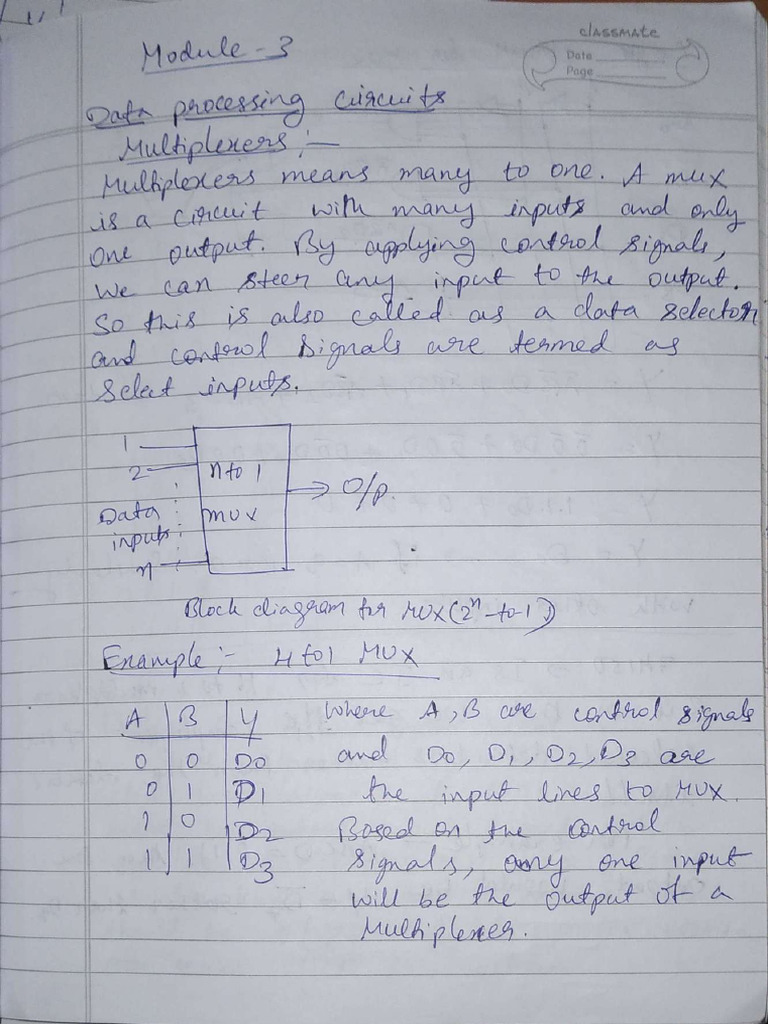 classmate
Date
Page
Module - 3
Data processing circuits
Multiplexers :-
Multiplexers means many to one. A mux
is a circuit with many inputs and only
one output. By applying control signals,
we can steer any input to the output.
So this is also called as a data selector
and control signals are termed as
select inputs.
1
2
n to 1
Data
inputs
mux
O/P.
n
Block diagram for MUX (2ⁿ-to-1)
Example :- 4 to 1 MUX
A B Y where A, B are control signals
0 0 D0 and D0, D1, D2, D3 are
0 1 D1 the input lines to MUX.
1 0 D2 Based on the control
1 1 D3 signals, any one input
will be the output of a
Multiplexer.